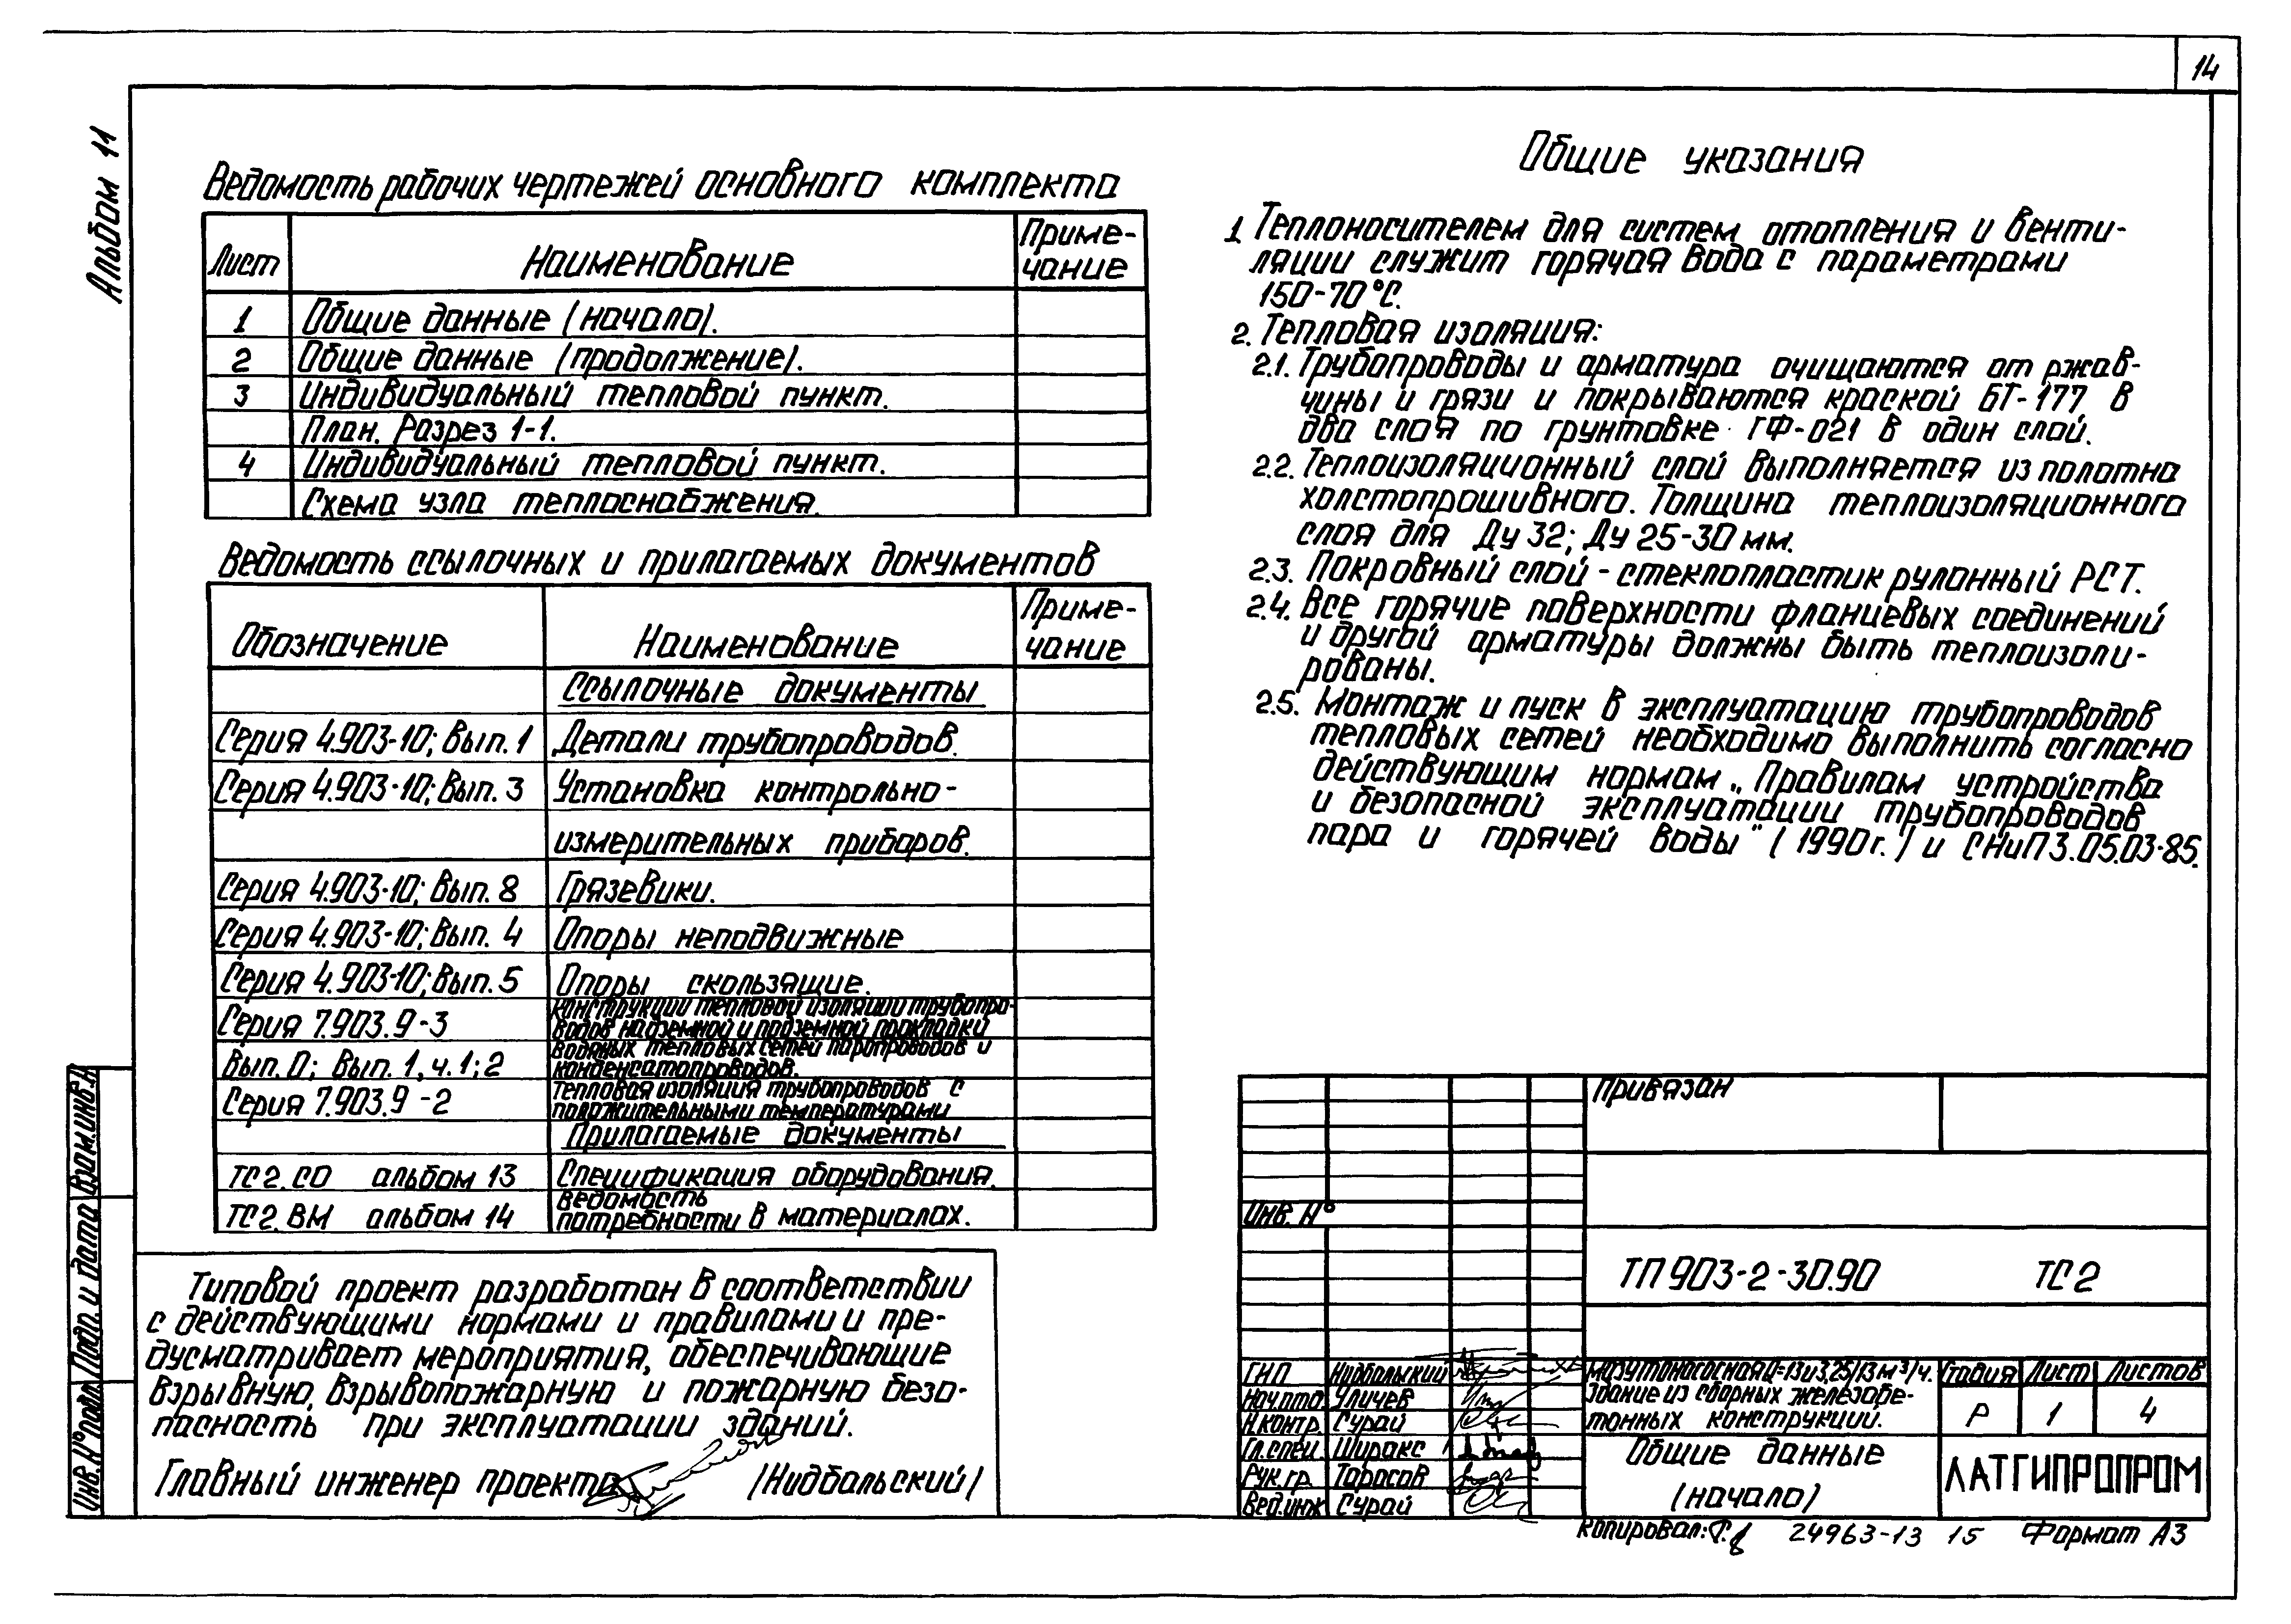 14
Альбом 11
Ведомость рабочих чертежей основного комплекта
Лист Наименование Приме-
чание
1 Общие данные (начало).
2 Общие данные (продолжение).
3 Индивидуальный тепловой пункт.
План. Разрез 1-1.
4 Индивидуальный тепловой пункт.
Схема узла теплоснабжения.
Ведомость ссылочных и прилагаемых документов
Обозначение Наименование Приме-
чание
Ссылочные документы
Серия 4.903-10; Вып. 1 Детали трубопроводов.
Серия 4.903-10; Вып. 3 Установка контрольно-
измерительных приборов.
Серия 4.903-10; Вып. 8 Грязевики.
Серия 4.903-10; Вып. 4 Опоры неподвижные
Серия 4.903-10; Вып. 5 Опоры скользящие.
Серия 7.903.9-3 Конструкции тепловой изоляции трубопро-
водов надземной и подземной прокладки
Вып. 0; Вып. 1, ч. 1; 2 водяных тепловых сетей паропроводов и
конденсатопроводов.
Серия 7.903.9-2 Тепловая изоляция трубопроводов с
положительными температурами
Прилагаемые документы
ТС2.СО альбом 13 Спецификация оборудования.
ТС2.ВМ альбом 14 Ведомость
потребности в материалах.
Типовой проект разработан в соответствии
с действующими нормами и правилами и пре-
дусматривает мероприятия, обеспечивающие
взрывную, взрывопожарную и пожарную безо-
пасность при эксплуатации зданий.
Главный инженер проекта /Нидбальский/
Общие указания
1. Теплоносителем для систем отопления и венти-
ляции служит горячая вода с параметрами
150-70°С.
2. Тепловая изоляция:
2.1. Трубопроводы и арматура очищаются от ржав-
чины и грязи и покрываются краской БТ-177 в
два слоя по грунтовке ГФ-021 в один слой.
2.2. Теплоизоляционный слой выполняется из полотна
холстопрошивного. Толщина теплоизоляционного
слоя для Ду 32; Ду 25-30 мм.
2.3. Покровный слой - стеклопластик рулонный РСТ.
2.4. Все горячие поверхности фланцевых соединений
и другой арматуры должны быть теплоизоли-
рованы.
2.5. Монтаж и пуск в эксплуатацию трубопроводов
тепловых сетей необходимо выполнить согласно
действующим нормам „Правилам устройства
и безопасной эксплуатации трубопроводов
пара и горячей воды" (1990г.) и СНиП 3.05.03-85.
Привязан
Инв. №
ТП 903-2-30.90 ТС2
ГИП Нидбальский
Нач.отд. Уличев
Н.контр. Сурай
Гл.спец. Ширакс
Рук.гр. Тарасов
Вед.инж Сурай
Мазутонасосная Q=13и3,25/13м³/ч.
Здание из сборных железобе-
тонных конструкций.
Стадия Лист Листов
Р 1 4
Общие данные
(начало)
ЛАТГИПРОПРОМ
Копировал: 24963-13 15 Формат А3
Инв.№подл. Подп. и дата Взам.инв.№